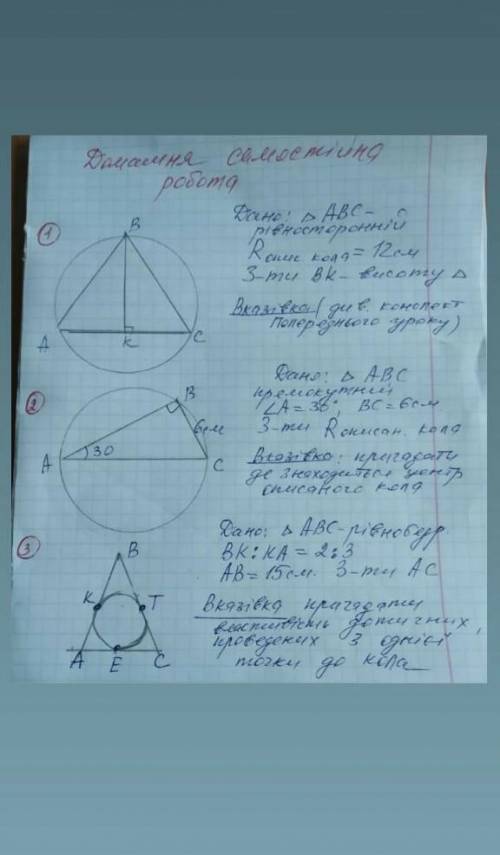 Домашня самостійна
робота
1
B
A
K
C
Дано: △ ABC -
рівносторонній
R опис кола = 12см
З-ти BK - висоту △
Вказівка (див. конспект
попереднього уроку)
2
B
6см
A
30
C
Дано: △ ABC
прямокутний
∠A = 30°, BC = 6см
З-ти R описан. кола
Вказівка: пригадати
де знаходиться центр
описаного кола
3
B
K
T
A
E
C
Дано: △ ABC - рівнобедр.
BK : KA = 2 : 3
AB = 15см. З-ти AC
Вказівка пригадати
властивість дотичних,
проведених з однієї
точки до кола